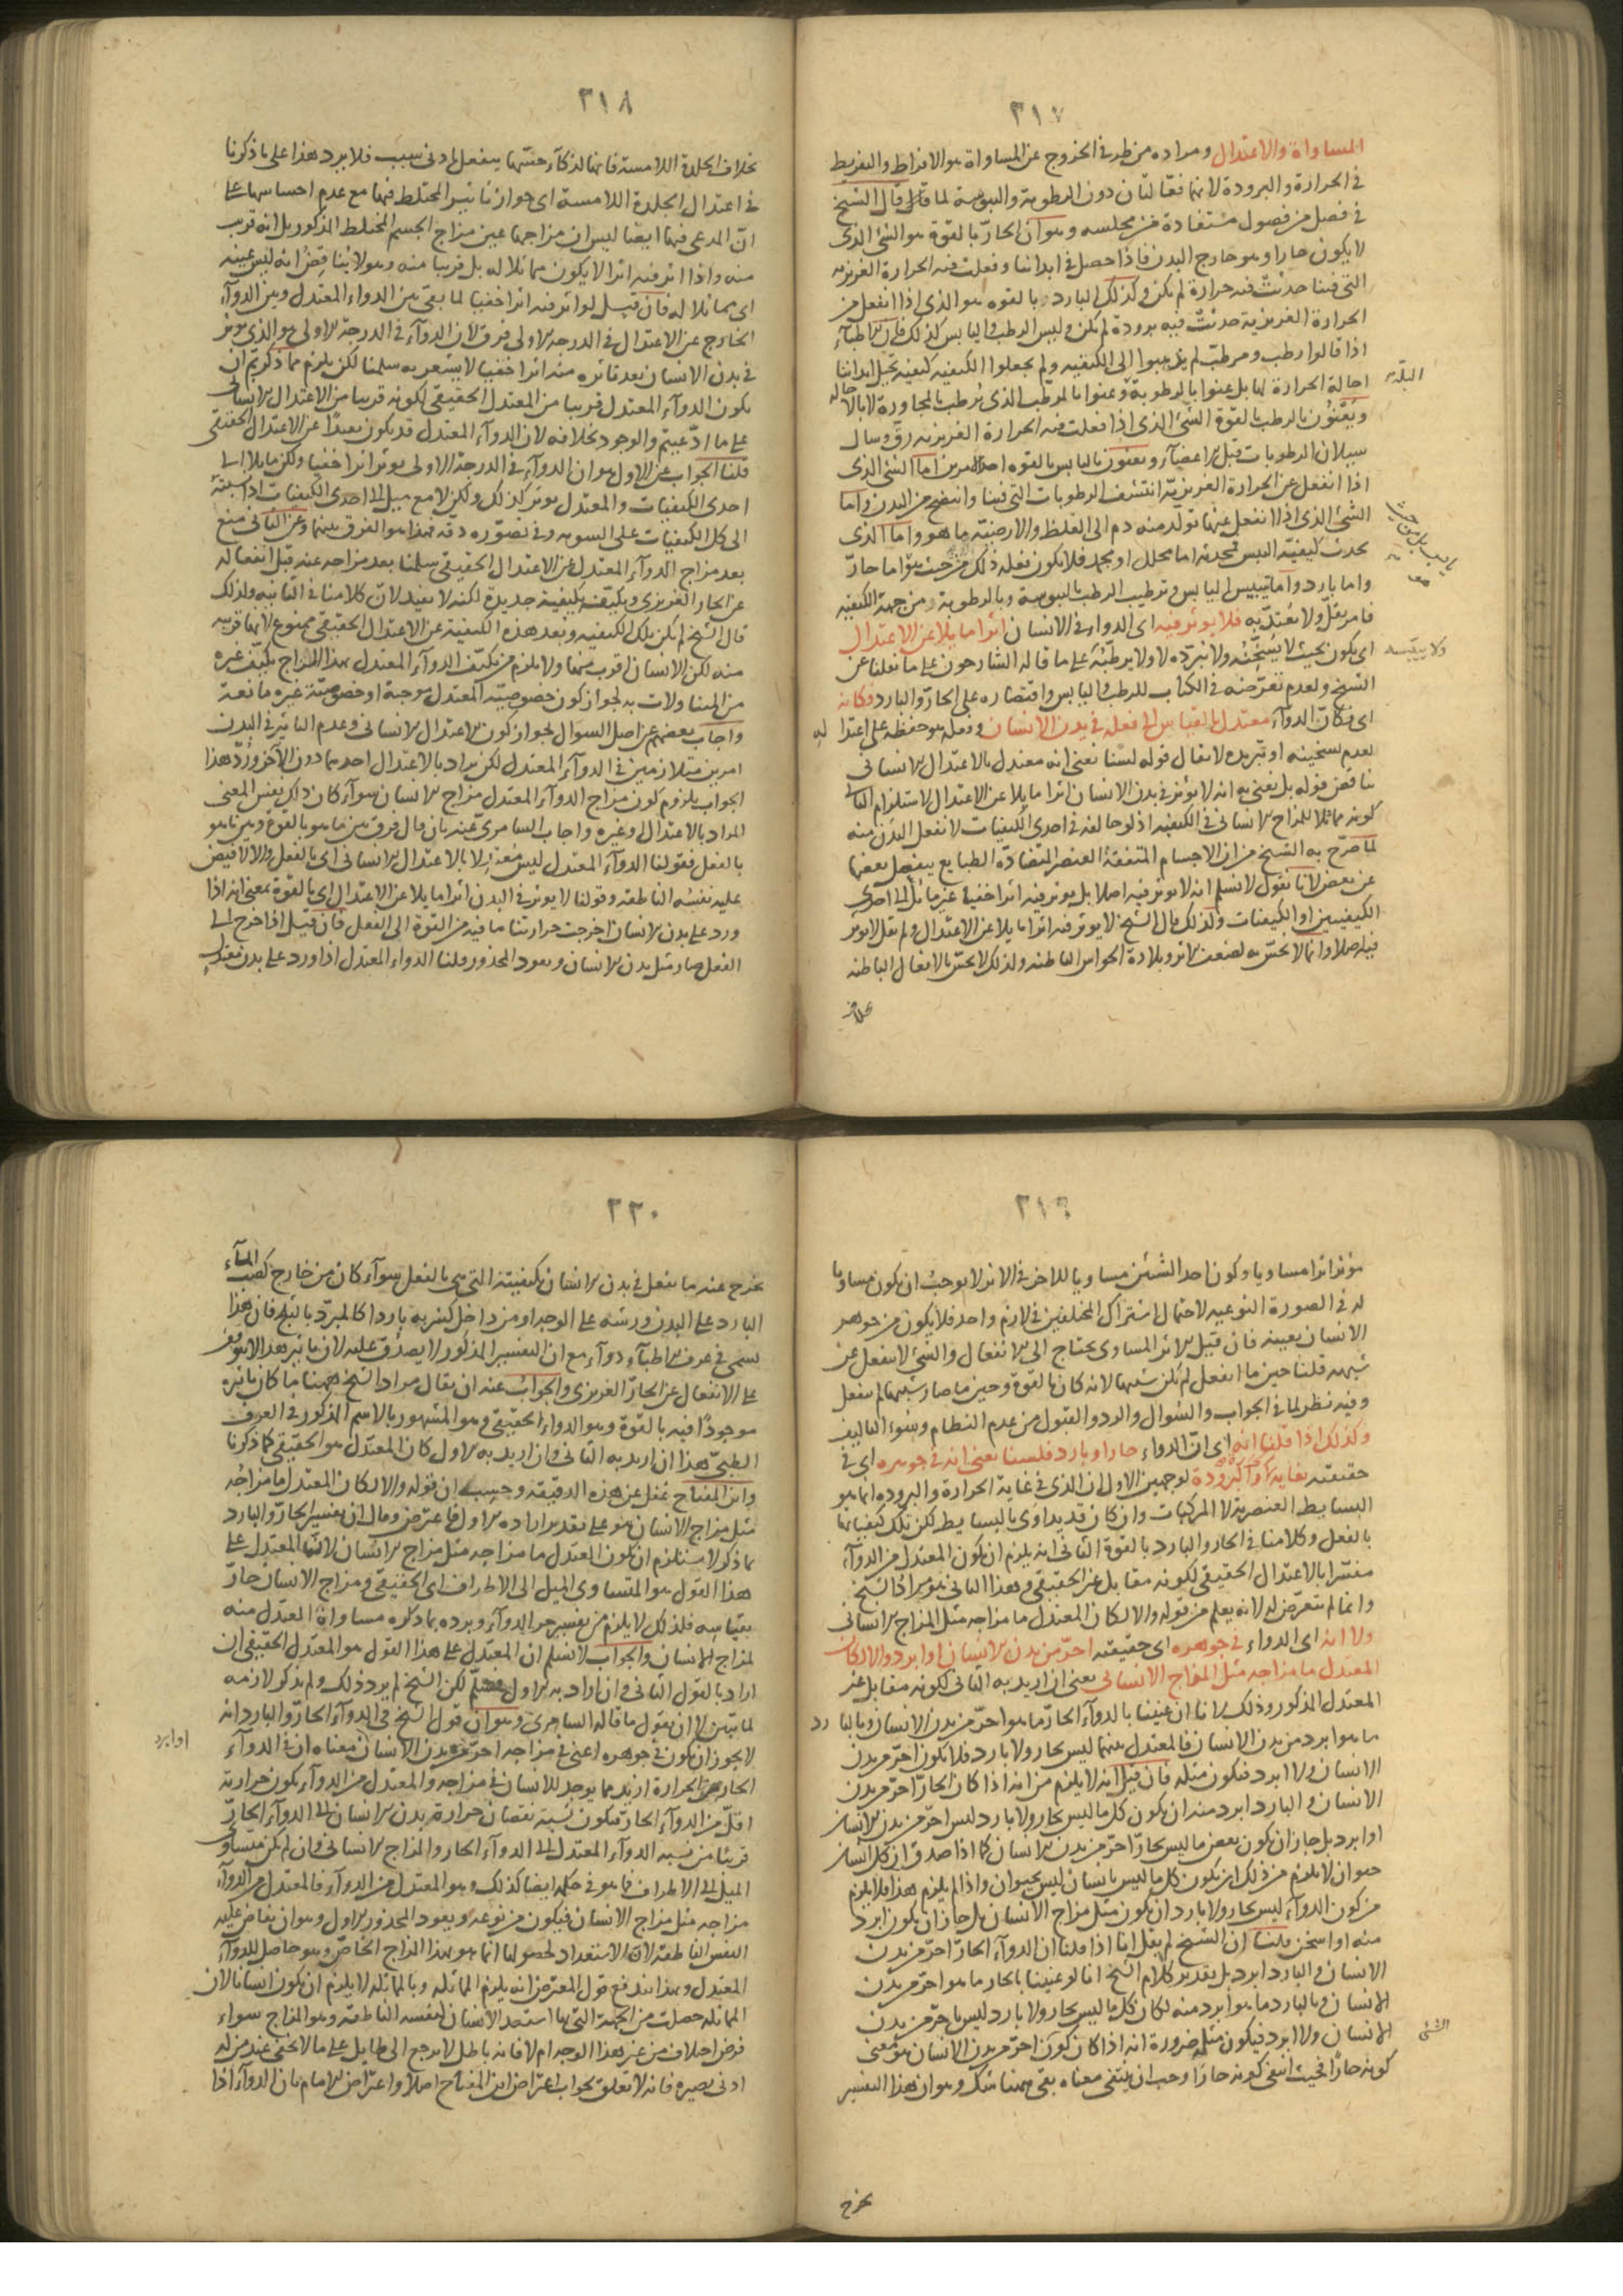 ٣١٧
المساواة والاعتدال ومراده من طرفى الخروج عن المساواة هو الافراط والتفريط
فى الحرارة والبرودة لانهما فعالتان دون الرطوبة واليبوسة لما قال الشيخ
فى فصل من فصول مستفادة من مجلسه وهو ان الحار بالقوة هو الشئ الذى
لا يكون حارا وهو خارج البدن فاذا حصل فى ابداننا وفعلت فيه الحرارة الغريزية
التى فينا حدثت فيه حرارة لم تكن وكذلك البارد بالقوه هو الذى اذا انفعل من
الحرارة الغريزية حدثت فيه برودة لم تكن وليس الرطب واليابس كذلك فان الاطباء
اذا قالوا رطب ومرطب لم يذهبوا الى الكيفيه ولم يجعلوا الكيفيه كيفية تحيل ابداننا
البتة
احالة الحرارة لها بل عنوا بالرطوبة وعنوا بالمرطب الذى يرطب بالمجاورة لا بالاحالة
ويعنون بالرطب بالقوة الشئ الذى اذا فعلت فيه الحرارة الغريزيه رق وسال
سيلان الرطوبات قبل الاعضاء ويعنون باليابس بالقوه احد الامرين اما الشئ الذى
اذا انفعل عن الحرارة الغريزية انتشف الرطوبات التى فينا وانفضح من البدن واما
الشئ الذى اذا انفعل عنها تولد منه دم الى الغلظ والارضية ما هو واما الذى
يحدث كيفية اليبس فيحدثه اما محلل او مجمد فلا يكون فعله ذلك من حيث هو اما حار
واما بارد واما تيبيس اليابس وترطيب الرطب باليبوسة وبالرطوبة ومن جهة الكيفيه
فامر يقل ولا يعتد به فلا يوثر فيه اى الدواء فى الانسان اثرا مايلا عن الاعتدال
ولا ييبسه
اى يكون بحيث لا يسخنه ولا يبرده لا ولا يرطبه على ما قاله الشارحون على ما نقلنا عن
الشيخ ولعدم تعرضه فى الكتاب للرطب واليابس واقتصاره على الحار والبارد فكانه
اى فكان الدواء معتدل بالقياس الى فعله فى بدن الانسان وفعله هو حفظه على اعتداله
لعدم تسخينه او تبريده لا يقال قوله لسنا نعنى انه معتدل بالاعتدال الانسانى
يناقض قوله بل نعنى به انه لا يوثر فى بدن الانسان اثرا مايلا عن الاعتدال لاستلزام الثانى
كونه مماثلا للمزاج الانسانى فى الكيفيه اذ لو خالفه فى احدى الكيفيات لانفعل البدن منه
لما صرح به الشيخ من ان الاجسام المتفقة العنصر المتضادة الطبايع ينفعل بعضها
عن بعض لانا نقول لا نسلم انه لا يوثر فيه اصلا بل يوثر فيه اثرا خفيا غير مائل الى احدى
الكيفيتين او الكيفيات ولذلك قال الشيخ لا يوثر فيه اثرا مايلا عن الاعتدال ولم يقل لا يوثر
فيه اصلا وانما لا يحس به لضعف الاثر وبلادة الحواس الباطنه ولذلك لا يحس بالانفعال الباطنه
بخلاف
٣١٨
بخلاف الجلدة اللامسة فانها لذكاء حسها ينفعل لادنى سبب فلا يرد هذا على ما ذكرنا
فى اعتدال الجلدة اللامسة اى جواز تاثير المختلط فيها مع عدم احساسها على
ان المدعى فيها ايضا ليس ان مزاجها عين مزاج الجسم المختلط المذكور بل انه قريب
منه واذا اثر فيه اثرا لا يكون مماثلا له بل قريبا منه وهو لا يناقض انه ليس عينه
اى مماثلا له فان قيل لو اثر فيه اثرا خفيا لما بقى بين الدواء المعتدل وبين الدواء
الخارج عن الاعتدال فى الدرجة الاولى فرق لان الدواء فى الدرجة الاولى هو الذى يوثر
فى بدن الانسان بعد تاثره منه اثرا خفيا لا يشعر به سلمنا لكن يلزم مما ذكرتم ان
يكون الدواء المعتدل قريبا من المعتدل الحقيقى لكونه قريبا من الاعتدال الانسانى
على ما ادعيتم والوجود بخلافه لان الدواء المعتدل قد يكون بعيدا عن الاعتدال الحقيقى
قلنا الجواب عن الاول هو ان الدواء فى الدرجة الاولى يوثر اثرا خفيا ولكن مايلا الى
احدى الكيفيات والمعتدل يوثر كذلك ولكن لا مع ميل الى احدى الكيفيات اذ نسبته
الى كل الكيفيات على السويه وفى تصوره دقة فهذا هو الفرق بينهما وعن الثانى منع
بعد مزاج الدواء المعتدل عن الاعتدال الحقيقى سلمنا بعد مزاجه عنه قبل انفعاله
عن الحار الغريزى وتكيفه بكيفية جديدة لكنه لا يفيد لان كلامنا فى الثانيه ولذلك
قال الشيخ لم تكن تلك الكيفيه وبعد هذه الكيفية عن الاعتدال الحقيقى ممنوع لانها قريبه
منه لكن الانسان اقرب منها ولا يلزم من تكيف الدواء المعتدل بهذا المزاج تكيف غيره
من المتناولات به لجواز كون خصوصيته المعتدل موجبة او خصوصية غيره مانعة
واجاب بعضهم عن اصل السوال لجواز كون الاعتدال الانسانى وعدم التاثير فى البدن
امرين متلازمين فى الدواء المعتدل لكن يراد بالاعتدال احدهما دون الاخر ورد هذا
الجواب بلزوم كون مزاج الدواء المعتدل مزاج الانسان سواء كان ذلك نفس المعنى
المراد بالاعتدال او غيره واجاب السامرى عنه بان قال فرق بين ما هو بالقوة وبين ما هو
بالفعل فقولنا الدواء المعتدل ليس معتدلا بالاعتدال الانسانى اى بالفعل والا لافيض
عليه نفسه الناطقه وقولنا لا يوثر فى البدن اثرا مايلا عن الاعتدال اى بالقوة بمعنى انه اذا
ورد على بدن الانسان اخرجت حرارتنا ما فيه من القوة الى الفعل فان قيل اذا خرج الى
الفعل صار مثل بدن الانسان ويعود المحذور قلنا الدواء المعتدل اذا ورد على بدن معتدل
٣١٩
موثر اثرا مساويا وكون احد الشيئين مساويا للاخر فى الاثر لا يوجب ان يكون مساويا
له فى الصورة النوعيه لاحتمال اشتراك المختلفين فى لازم واحد فلا يكون من جوهر
الانسان بعينه فان قيل الاثر المساوى يحتاج الى الانفعال والشئ لا ينفعل عن
شبيهه قلنا حين ما انفعل لم يكن شبيها لانه كان بالقوة وحين ما صار شبيها لم ينفعل
وفيه نظر لما فى الجواب والسوال والرد والقبول من عدم النظام وسوء التاليف
وكذلك اذا قلنا انه اى ان الدواء حار او بارد فلسنا نعنى انه فى جوهره اى فى
حقيقته بغاية الحرارة او البرودة لوجهين الاول ان الذى فى غاية الحرارة والبروده انما هو
البسايط العنصرية لا المركبات وان كان قد يداوى بالبسايط لكن تلك كيفياتها
بالفعل وكلامنا فى الحار والبارد بالقوة الثانى انه يلزم ان يكون المعتدل من الدواء
مفسرا بالاعتدال الحقيقى لكونه مقابل غير الحقيقى وهذا الثانى هو مراد الشيخ
وانما لم يتعرض له لانه يعلم من قوله والا لكان المعتدل ما مزاجه مثل المزاج الانسانى
ولا انه اى الدواء فى جوهره اى حقيقته احر من بدن الانسان او ابرد والا لكان
المعتدل ما مزاجه مثل المزاج الانسانى يعنى ان اريد به الثانى لكونه مقابل غير
المعتدل المذكور وذلك لانا ان عنينا بالدواء الحار ما هو احر من بدن الانسان وبالبارد
ما هو ابرد من بدن الانسان فالمعتدل بينهما ليس بحار ولا بارد فلا يكون احر من بدن
الانسان ولا ابرد فيكون مثله فان قيل انه لا يلزم من انه اذا كان الحار احر من بدن
الانسان والبارد ابرد منه ان يكون كل ما ليس بحار ولا بارد ليس احر من بدن الانسان
او ابرد بل جاز ان يكون بعض ما ليس بحار احر من بدن الانسان كما اذا صدق ان كل انسان
حيوان لا يلزم من ذلك ان يكون كل ما ليس بانسان ليس بحيوان واذا لم يلزم هذا فلا يلزم
من كون الدواء ليس بحار ولا بارد ان يكون مثل مزاج الانسان بل جاز ان يكون ابرد
منه او اسخن قلنا ان الشيخ لم يقل انا اذا قلنا ان الدواء الحار احر من بدن
الانسان والبارد ابرد بل تقدير كلام الشيخ انا لو عنينا بالحار ما هو احر من بدن
الانسان وبالبارد ما هو ابرد منه لكان كل ما ليس بحار ولا بارد ليس باحر من بدن
الشئ
الانسان ولا ابرد فيكون مثله ضرورة انه اذا كان كون احر من بدن الانسان هو معنى
كونه حارا فحيث انتفى كونه حارا وجب ان ينتفى معناه بقى ههنا شك وهو ان هذا التفسير
يخرج
٣٢٠
يخرج عنه ما يفعل فى بدن الانسان بكيفيته التى هى بالفعل سواء كان من خارج كصب الماء
البارد على البدن ورشه على الوجه او من داخل كشربه باردا كالمبرد بالثلج فان هذا
يسمى فى عرف الاطباء دواء مع ان التفسير المذكور لا يصدق عليه لان تاثير هذا لا يتوقف
على الانفعال عن الحار الغريزى والجواب عنه ان يقال مراد الشيخ ههنا ما كان تاثيره
موجودا فيه بالقوة وهو الدواء الحقيقى وهو المشهور بالاسم المذكور فى العرف
الطبى هذا ان اريد به الثانى وان اريد به الاول كان المعتدل هو الحقيقى كما ذكرنا
وابن المفتاح غفل عن هذه الدقيقة وحسب ان قوله والا لكان المعتدل ما مزاجه
مثل مزاج الانسان هو على تقدير اراده الاول فاعترض وقال ان تفسير الحار والبارد
بما ذكر لا يستلزم ان يكون المعتدل ما مزاجه مثل مزاج الانسان لان المعتدل على
هذا القول هو المتساوى الميل الى الاطراف اى الحقيقى ومزاج الانسان حار
بقياسه فلذلك لا يلزم من تفسير حر الدواء وبرده بما ذكره مساواة المعتدل منه
لمزاج الانسان والجواب لا نسلم ان المعتدل على هذا القول هو المعتدل الحقيقى ان
اراد بالقول الثانى وان اراد به الاول فمسلم لكن الشيخ لم يرد ذلك ولم يذكر لازمه
لما تبين الا ان يقول ما قاله السامرى وهو ان قول الشيخ فى الدواء الحار والبارد انه
او ابرد
لا يجوز ان يكون فى جوهره اعنى فى مزاجه احر من بدن الانسان معناه ان فى الدواء
الحار من الحرارة ازيد مما يوجد للانسان فى مزاجه والمعتدل من الدواء يكون حرارته
اقل من الدواء الحار فيكون نسبة نقصان حرارة بدن الانسان الى الدواء الحار
قريبا من نسبه الدواء المعتدل الى الدواء الحار والمزاج الانسانى وان لم يكن متساوى
الميل الى الاطراف فما هو فى حكمه ايضا كذلك وهو المعتدل من الدواء فالمعتدل من الدواء
مزاجه مثل مزاج الانسان فيكون من نوعه ويعود المحذور الاول وهو ان يفاض عليه
النفس الناطقة لان الاستعداد لحصولها انما هو بهذا المزاج الخاص وهو حاصل للدواء
المعتدل وبهذا يندفع قول المعترض انه يلزم المماثله وبالمماثله لا يلزم ان يكون انسانا لان
المماثله حصلت من الجهة التى بها استعد الانسان لنفسه الناطقه وهو المزاج سواء
فرض اختلاف من غير هذا الوجه ام لا فانه باطل لا يرجع الى طايل على ما لا يخفى عند من له
ادنى بصيره فانه لا تعلق بجواب اعتراض ابن المفتاح اصلا واعتراض الامام بان الدواء اذا